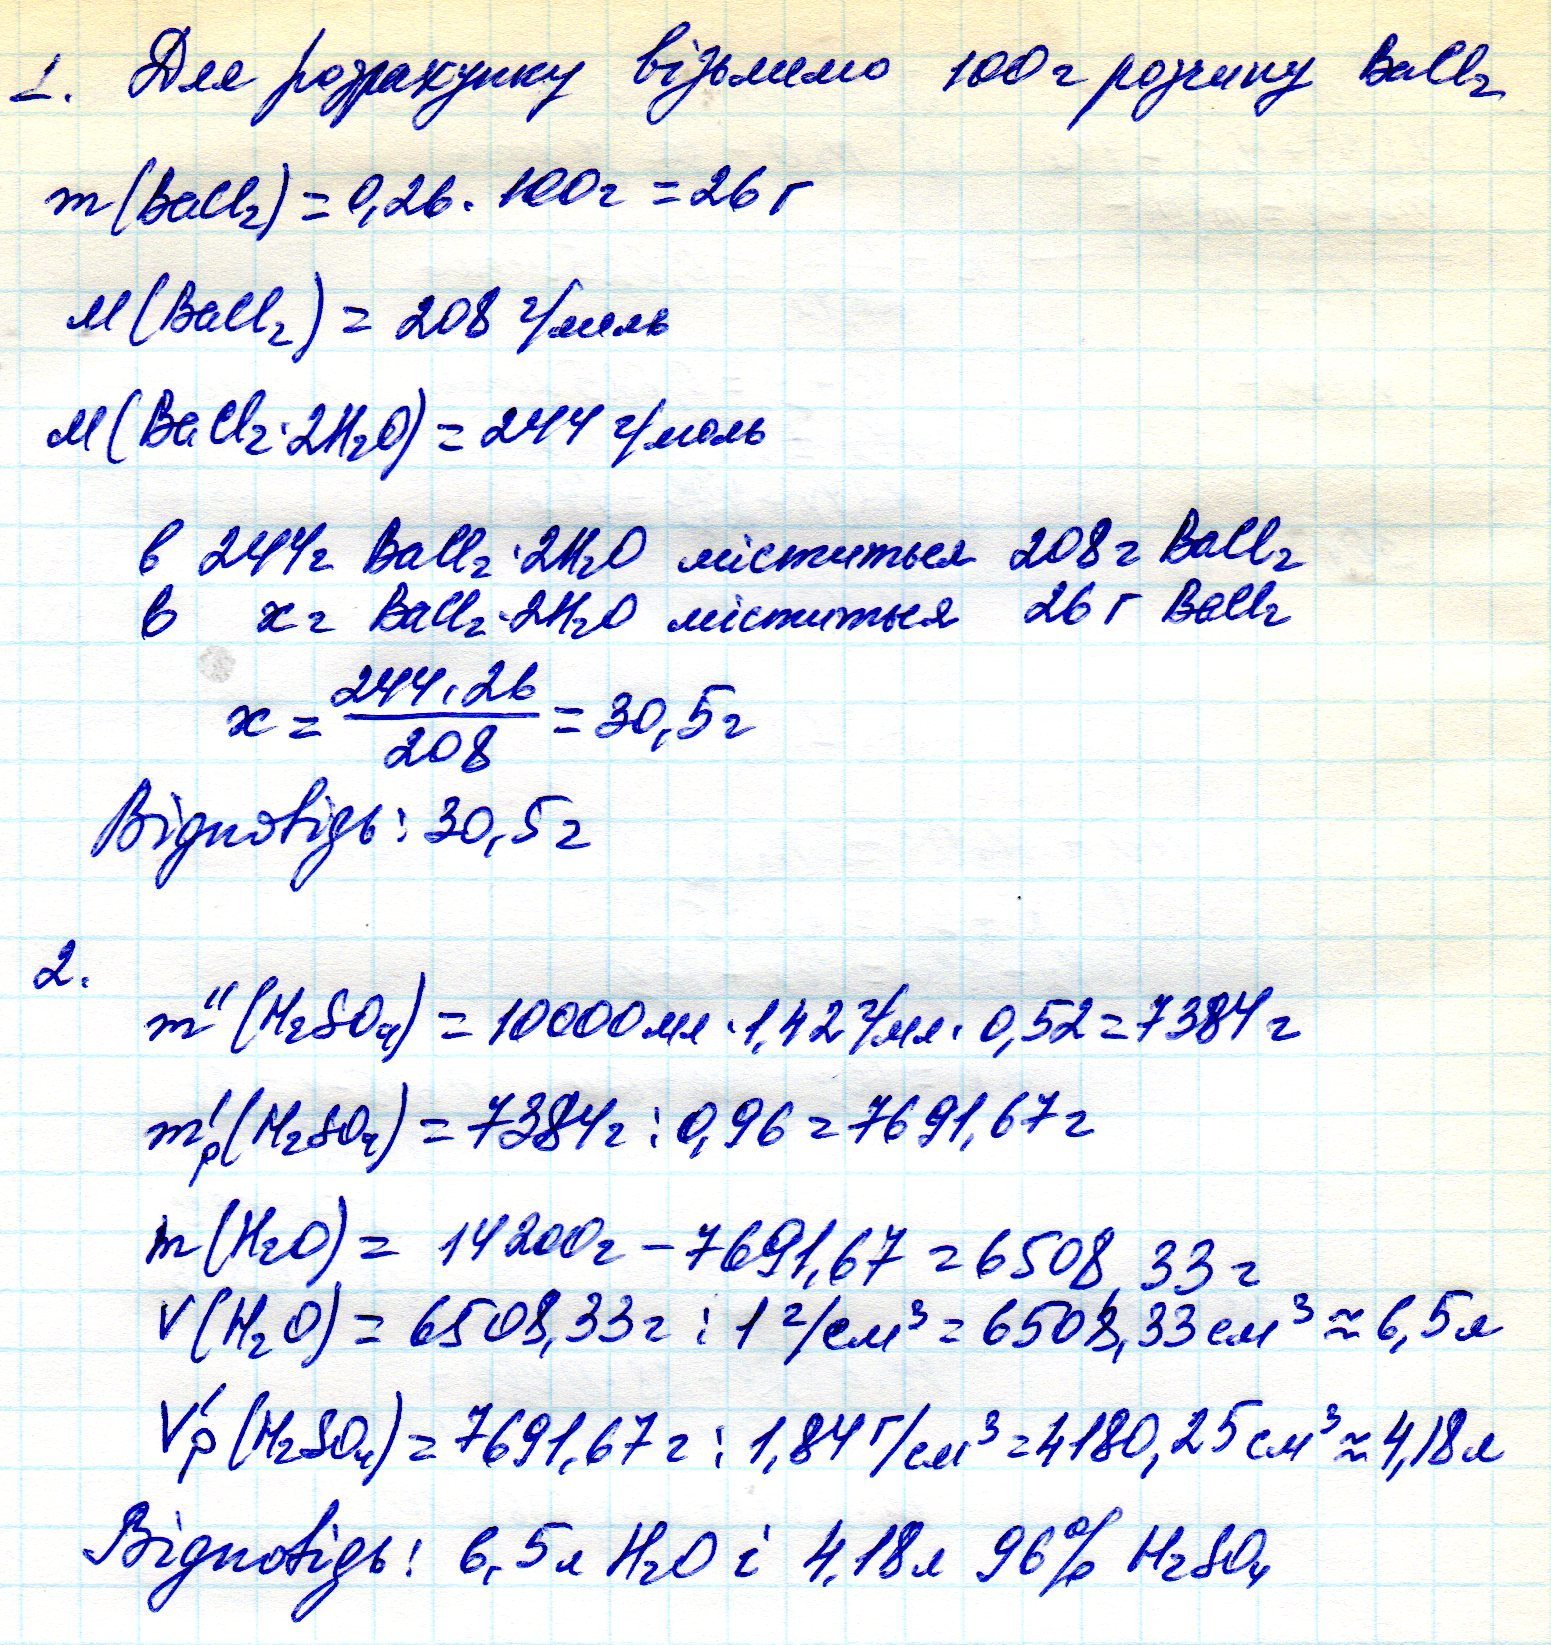 1. Для розрахунку візьмемо 100г розчину BaCl₂
m(BaCl₂) = 0,26 · 100г = 26 г
M(BaCl₂) = 208 г/моль
M(BaCl₂·2H₂O) = 244 г/моль
в 244г BaCl₂·2H₂O міститься 208г BaCl₂
в xг BaCl₂·2H₂O міститься 26 г BaCl₂
x = 244·26/208 = 30,5г
Відповідь: 30,5г
2.
m"(H₂SO₄) = 10000мл · 1,42г/мл · 0,52 = 7384г
m'р(H₂SO₄) = 7384г : 0,96 = 7691,67г
m(H₂O) = 14200г – 7691,67 = 6508,33г
V(H₂O) = 6508,33г : 1г/см³ = 6508,33см³ ≈ 6,5л
V'р(H₂SO₄) = 7691,67г : 1,84г/см³ = 4180,25см³ ≈ 4,18л
Відповідь: 6,5л H₂O і 4,18л 96% H₂SO₄